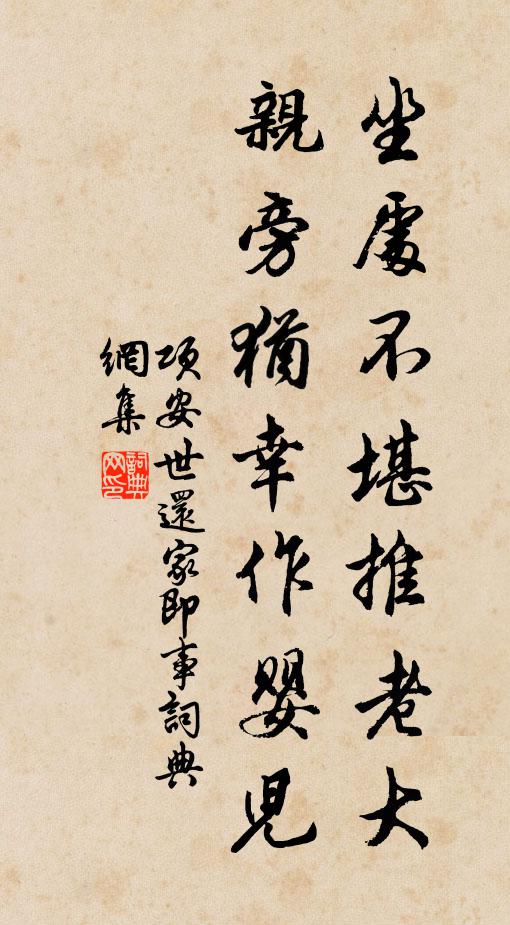 坐處不堪推老大
親旁猶幸作嬰兒
項安世還家即事詞典
網集
詞典网印